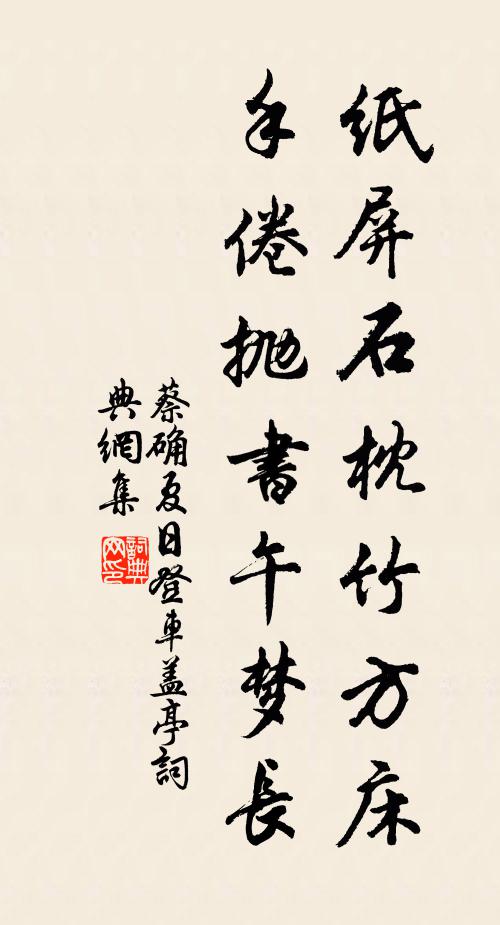 纸屏石枕竹方床
手倦抛書午梦長
蔡确夏日登車盖亭詞
典網集
詞典网印